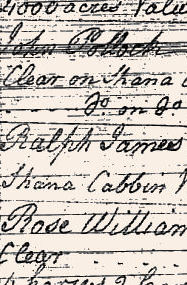 4000 acres Valu
John Pollock
Clear on Skana
do. on do.
Ralph James
Skana Cabbin
Rose William
Clear